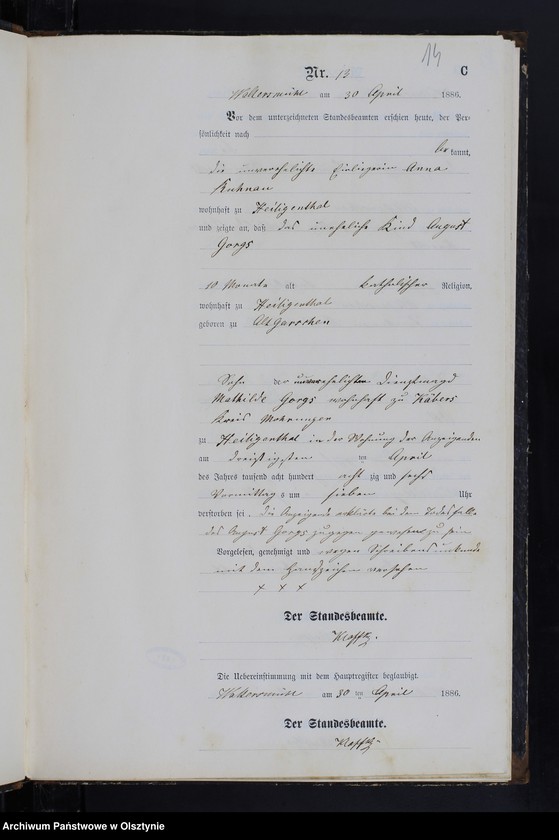 14
Nr. 13 C
Woltersmühl am 30 April 1886.
Vor dem unterzeichneten Standesbeamten erschien heute, der Per-
sönlichkeit nach
be kannt,
die unverehelichte Einliegerin Anna
Kuhnau
wohnhaft zu Heiligenthal
und zeigte an, daß das uneheliche Kind August
Gorgs
10 Monate alt katholischer Religion,
wohnhaft zu Heiligenthal
geboren zu Alt Garschen
Sohn der unverehelichten Dienstmagd
Mathilde Gorgs wohnhaft zu Käbers
Kreis Mohrungen
zu Heiligenthal in der Wohnung der Anzeigenden
am dreißigsten ten April
des Jahres tausend acht hundert acht zig und sechs
Vormittag s um sieben Uhr
verstorben sei. Die Anzeigende erklärte bei dem Todesfalle
des August Gorgs zugegen gewesen zu sein
Vorgelesen, genehmigt und wegen Schreibensunkunde
mit dem Handzeichen versehen
+ + +
Der Standesbeamte.
Die Uebereinstimmung mit dem Hauptregister beglaubigt.
Woltersmühl am 30 ten April 1886.
Der Standesbeamte.
Archiwum Państwowe w Olsztynie